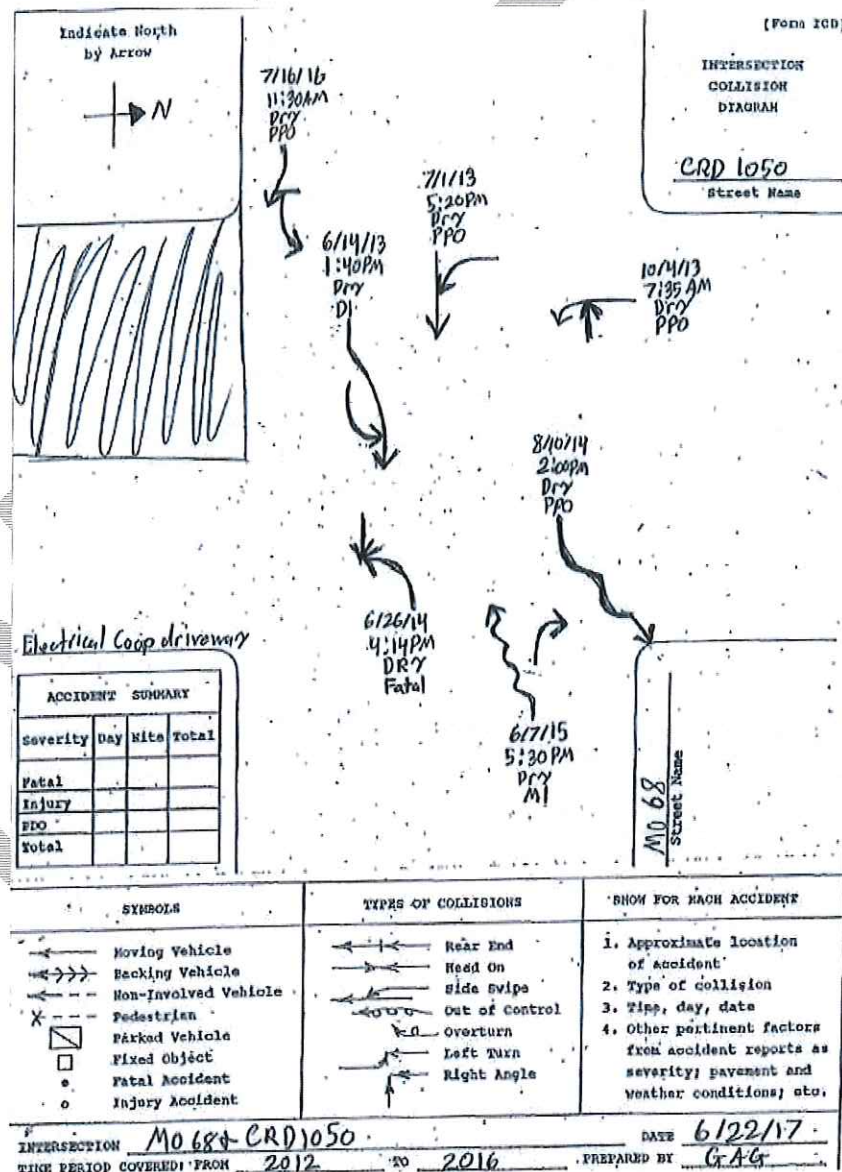 Indicate North
by Arrow
N
[Form ICD]
INTERSECTION
COLLISION
DIAGRAM
CRD 1050
Street Name
7/16/16
11:30AM
Dry
PPO
7/1/13
5:20PM
Dry
PPO
6/14/13
1:40PM
Dry
DI
10/4/13
7:35 AM
Dry
PPO
8/10/14
2:00PM
Dry
PPO
6/26/14
4:14PM
DRY
Fatal
6/7/15
5:30PM
Dry
MI
Electrical Coop driveway
ACCIDENT SUMMARY
Severity Day Nite Total
Fatal
Injury
PDO
Total
MO 68
Street Name
SYMBOLS
Moving Vehicle
Backing Vehicle
Non-Involved Vehicle
Pedestrian
Parked Vehicle
Fixed Object
Fatal Accident
Injury Accident
TYPES OF COLLISIONS
Rear End
Head On
Side Swipe
Out of Control
Overturn
Left Turn
Right Angle
SHOW FOR EACH ACCIDENT
1. Approximate location
of accident
2. Type of collision
3. Time, day, date
4. Other pertinent factors
from accident reports as
severity; pavement and
weather conditions; etc.
INTERSECTION MO 68 & CRD 1050
DATE 6/22/17
TIME PERIOD COVERED: FROM 2012 TO 2016
PREPARED BY GAG